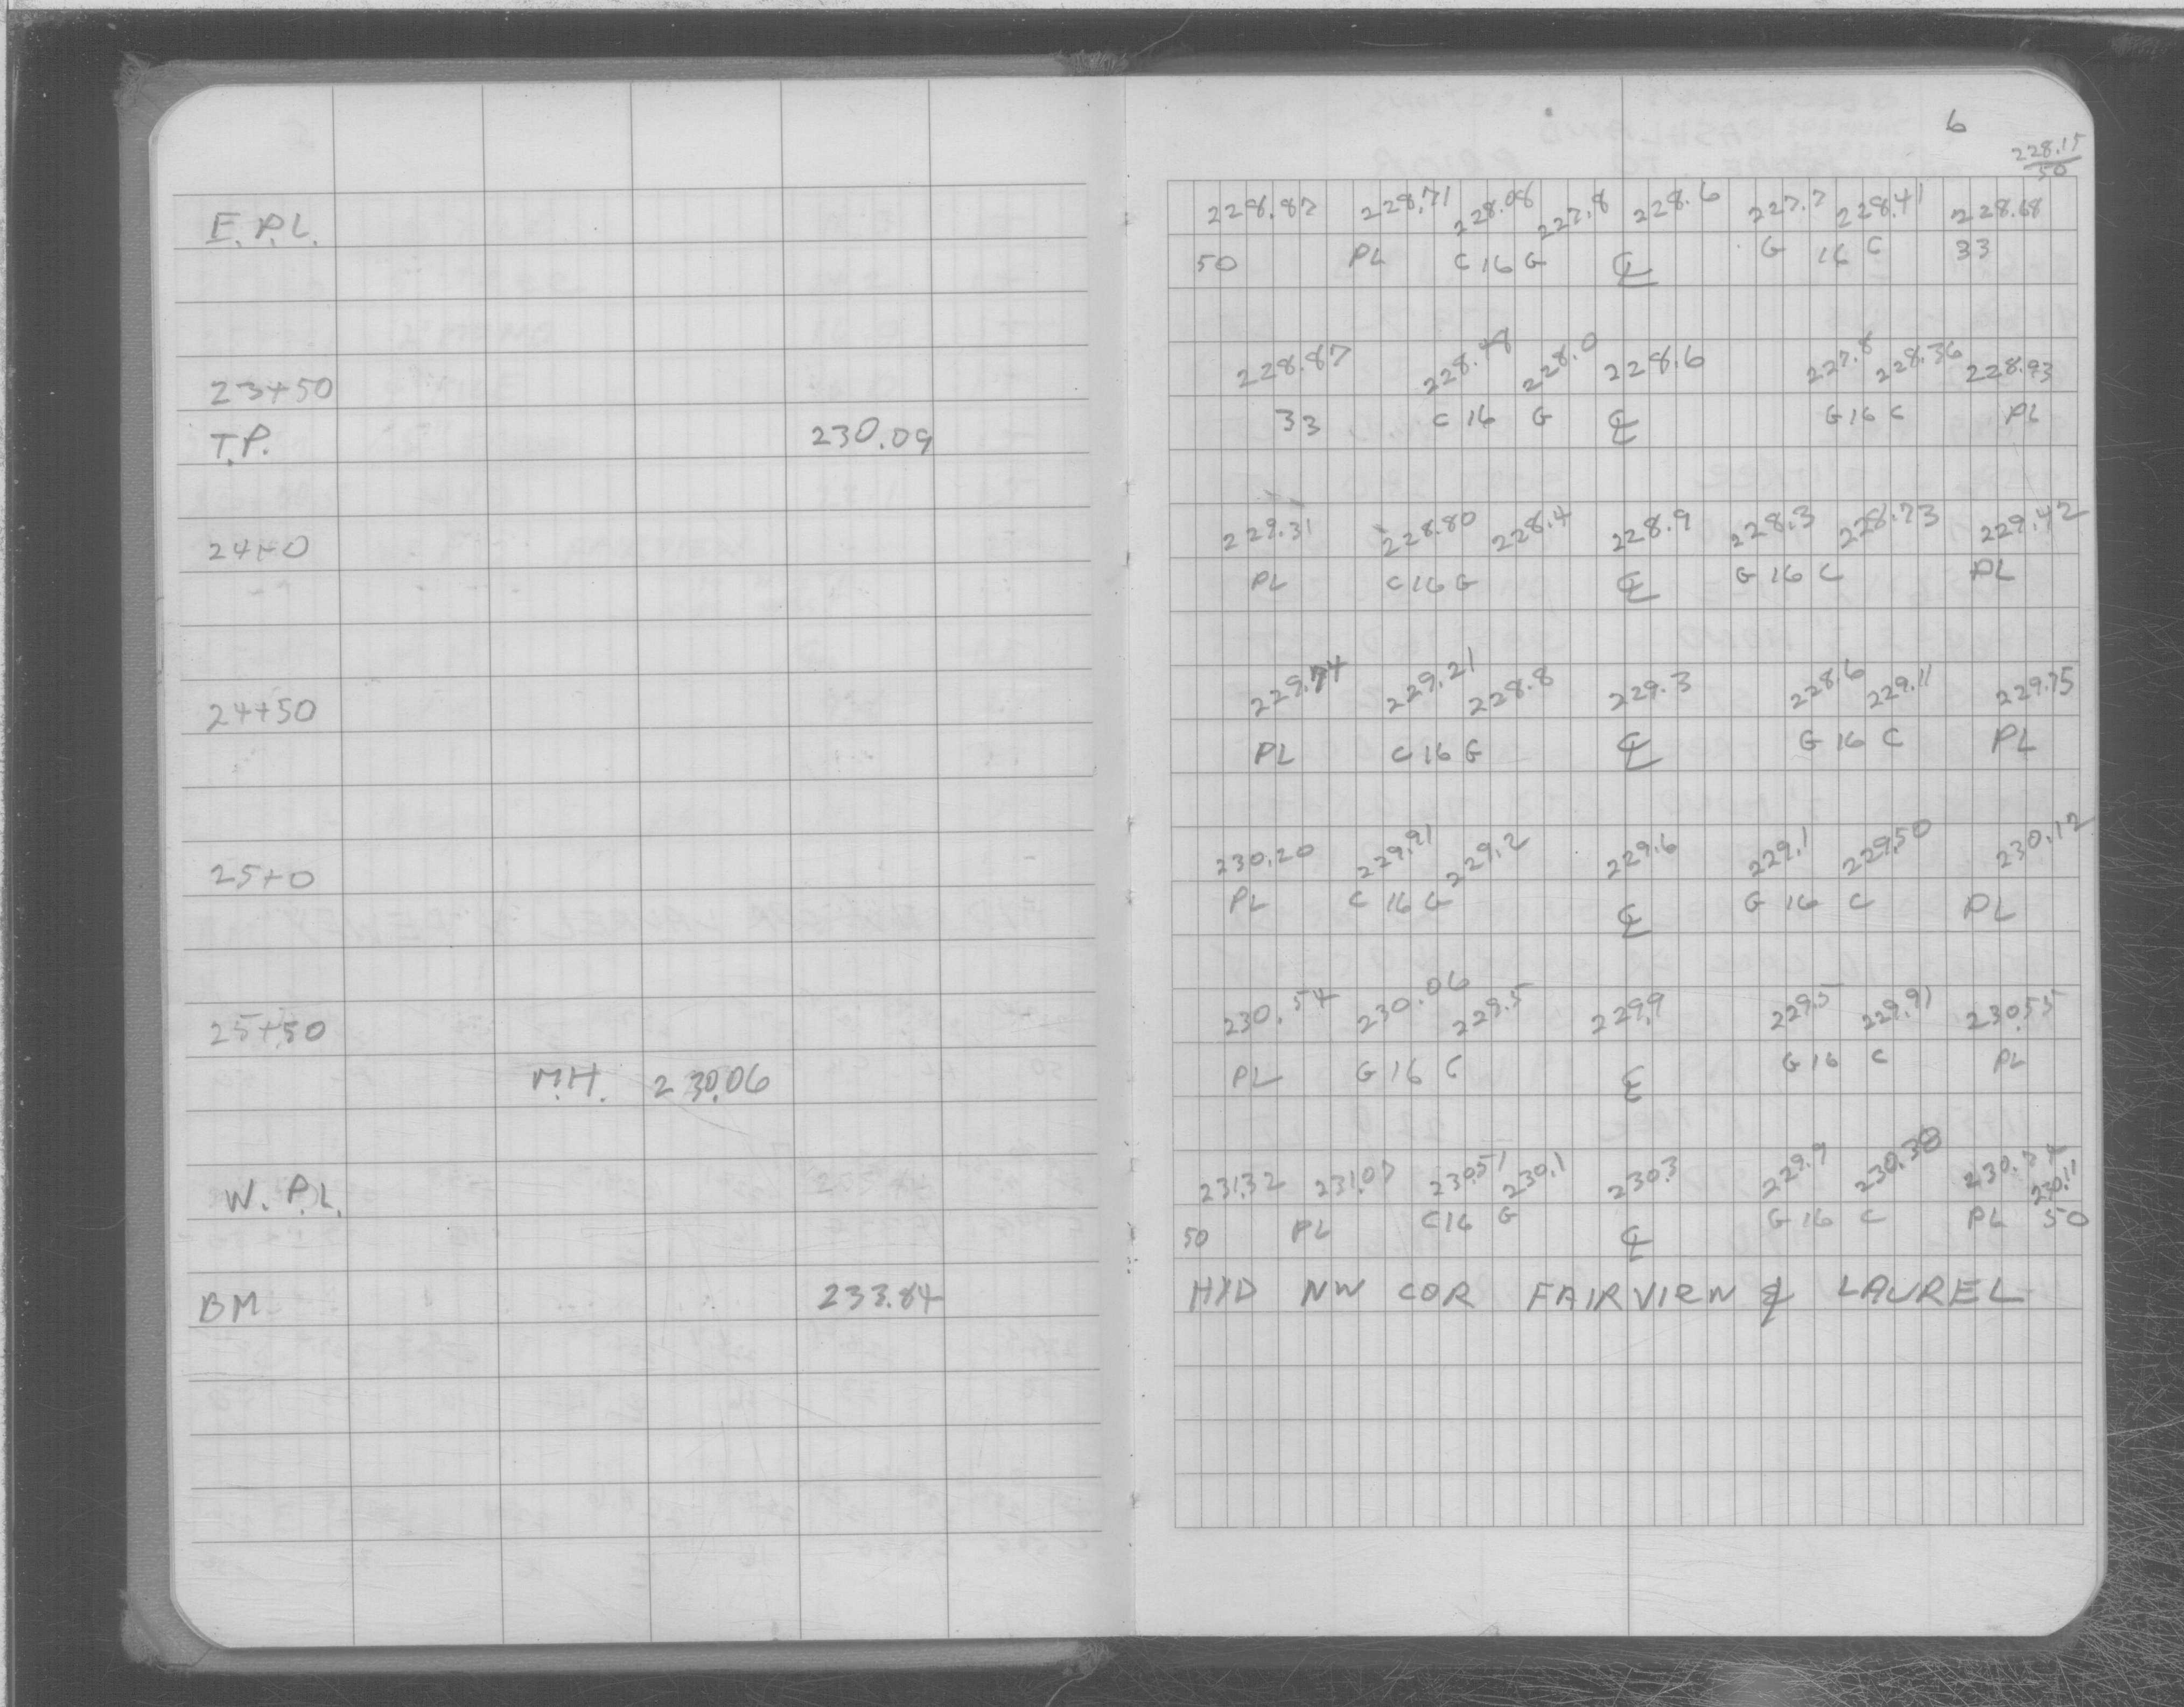 6
228.15
50
E. P.L. 228.87 228.71 228.08 227.8 228.6 227.7 228.41 228.68
50 PL C 16 G ℄ G 16 C 33
23+50 228.87 228.48 228.0 228.6 227.8 228.36 228.93
T.P. 230.09 33 C 16 G ℄ G 16 C PL
24+0 229.31 228.80 228.4 228.9 228.3 228.73 229.42
PL C 16 G ℄ G 16 C PL
24+50 229.74 229.21 228.8 229.3 228.6 229.11 229.75
PL C 16 G ℄ G 16 C PL
25+0 230.20 229.2 229.6 229.1 229.50 230.12
PL C 16 G ℄ G 16 C PL
25+50 230.54 230.06 229.5 229.9 229.5 229.91 230.55
M.H. 230.06 PL G 16 C ℄ G 16 C PL
W. P.L. 231.32 231.07 230.51 230.1 230.3 229.9 230.38 230.11
50 PL C 16 G ℄ G 16 C PL 50
BM 233.84 HYD NW COR FAIRVIEW & LAUREL